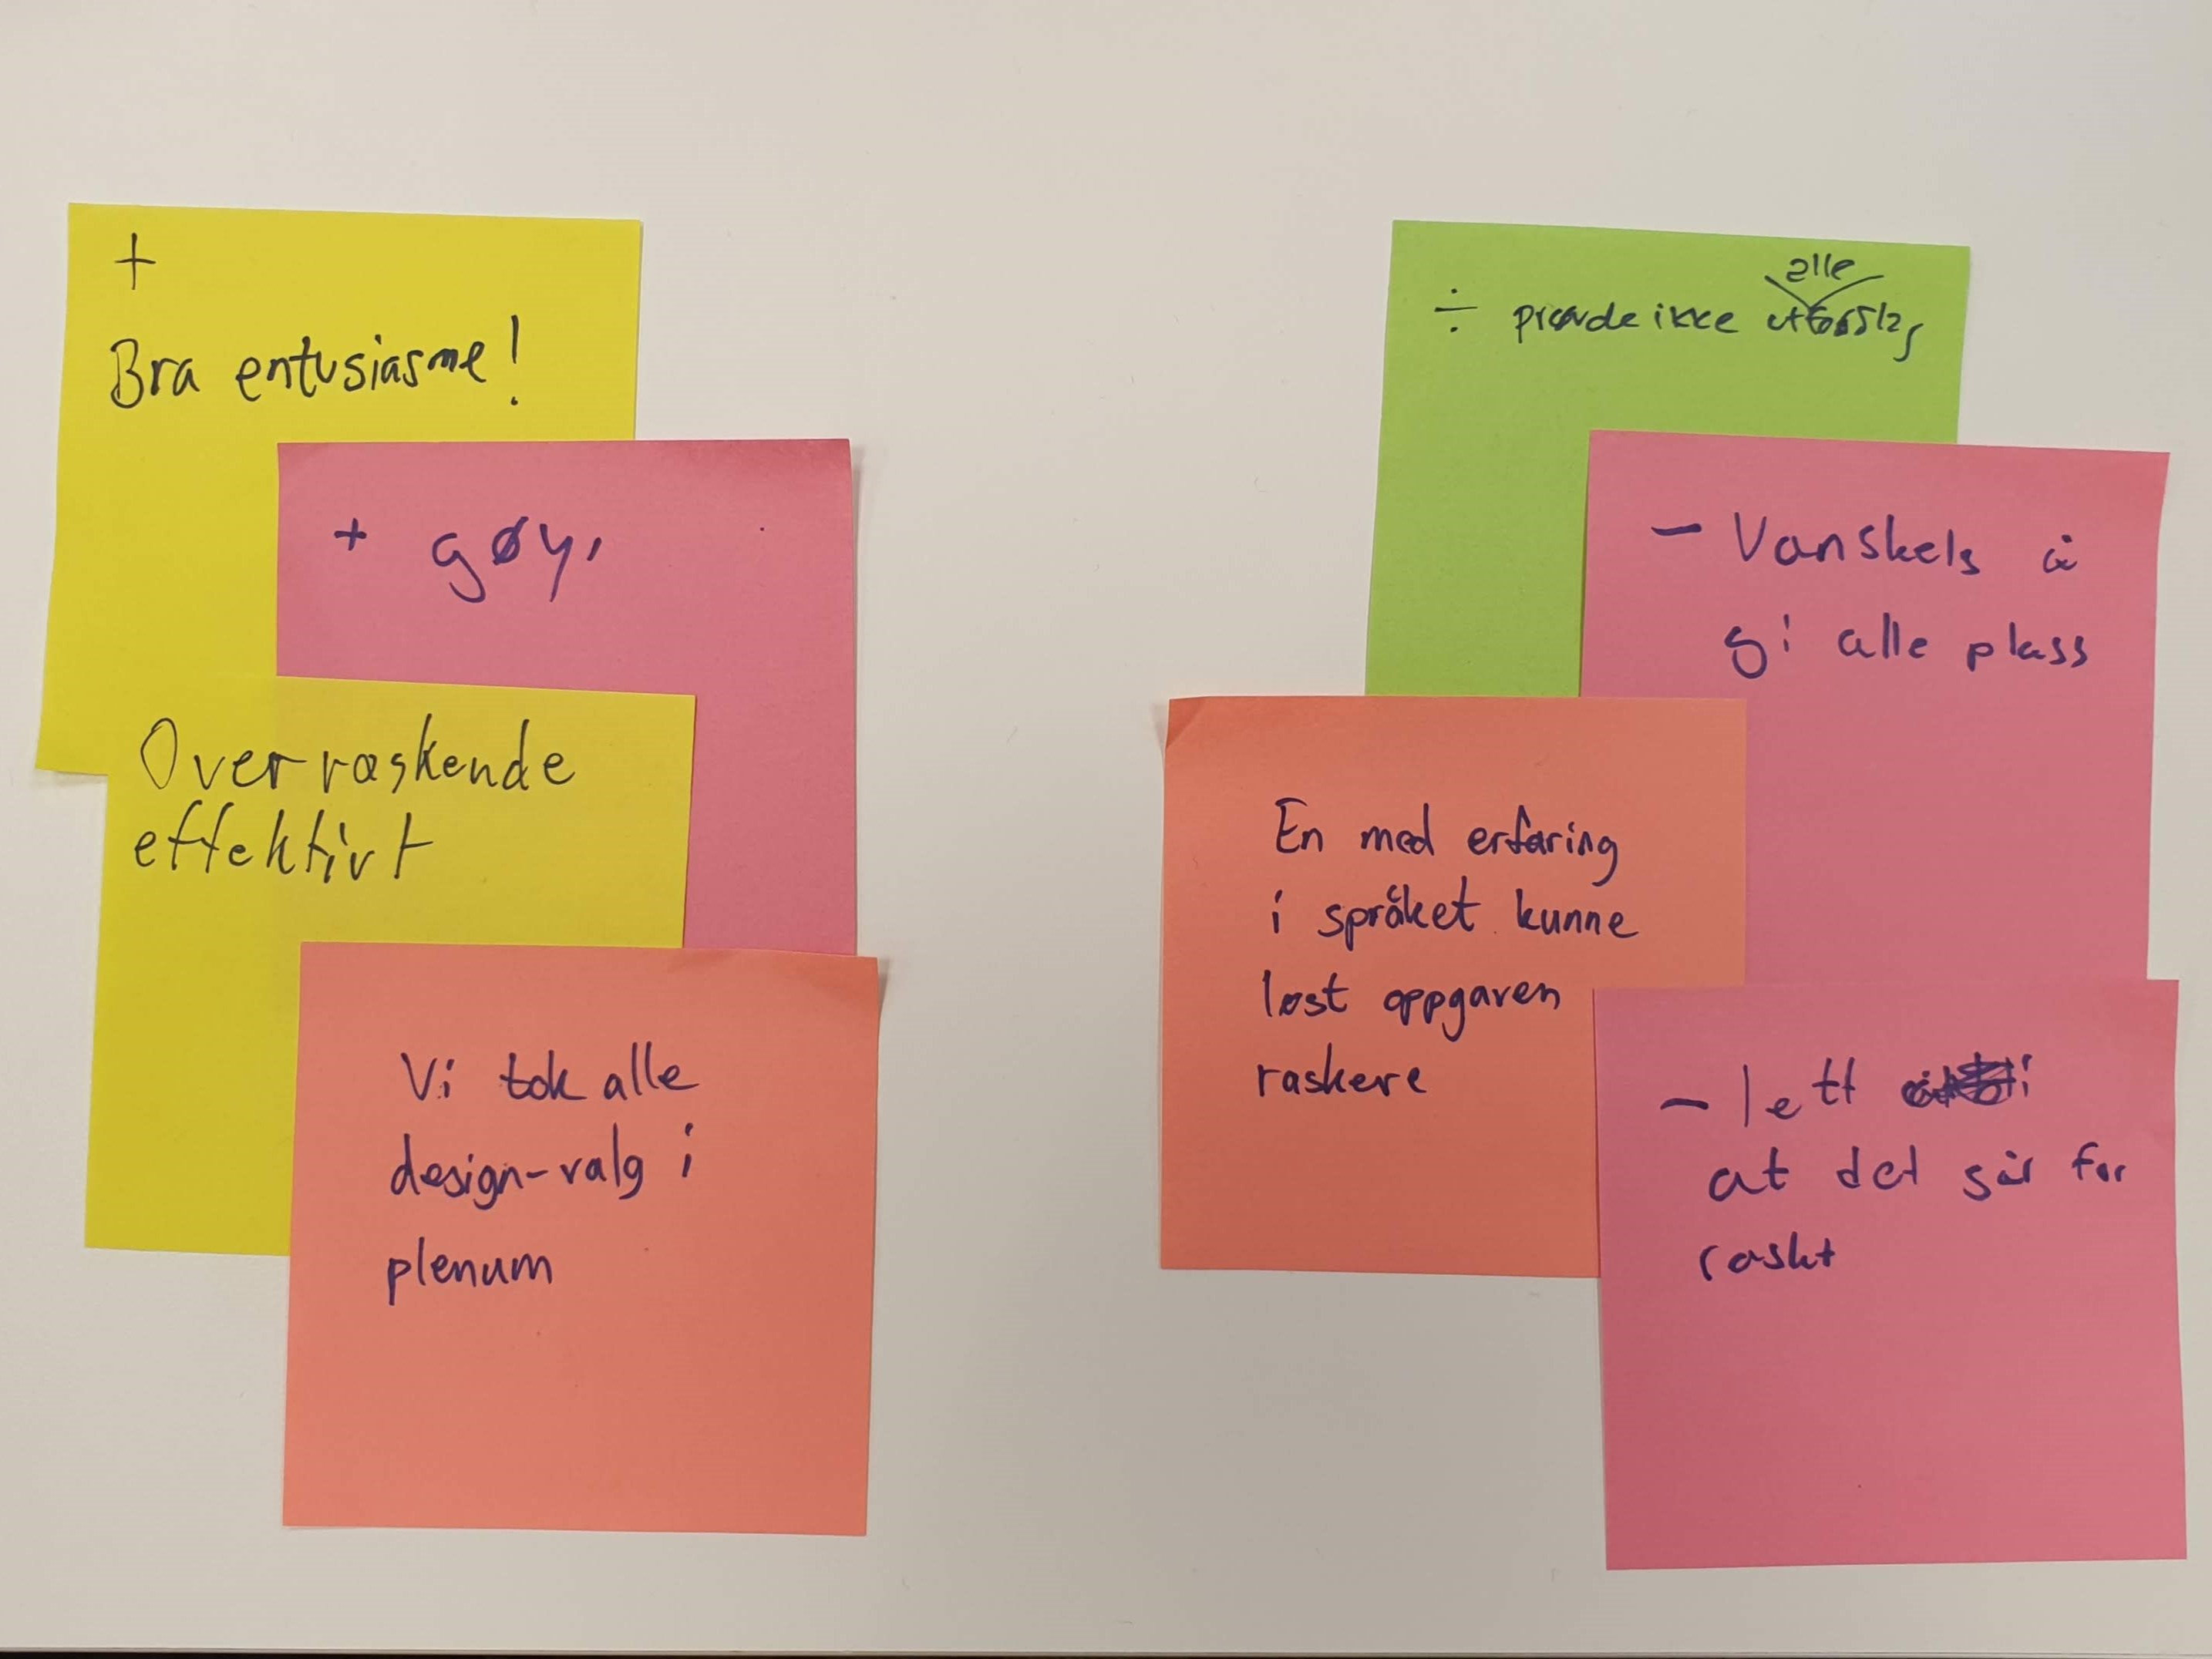 +
Bra entusiasme!
+ gøy,
Overraskende
effektivt
Vi tok alle
design-valg i
plenum
alle
÷ prøvde ikke
- Vanskelg å
gi alle plass
En med erfaring
i språket kunne
løst oppgaven
raskere
- lett
at det går for
raskt